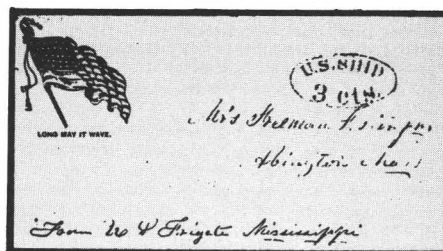 LONG MAY IT WAVE.
U.S. SHIP
3 cts.
Mrs Freeman
Abington Mass
From U S Frigate Mississippi